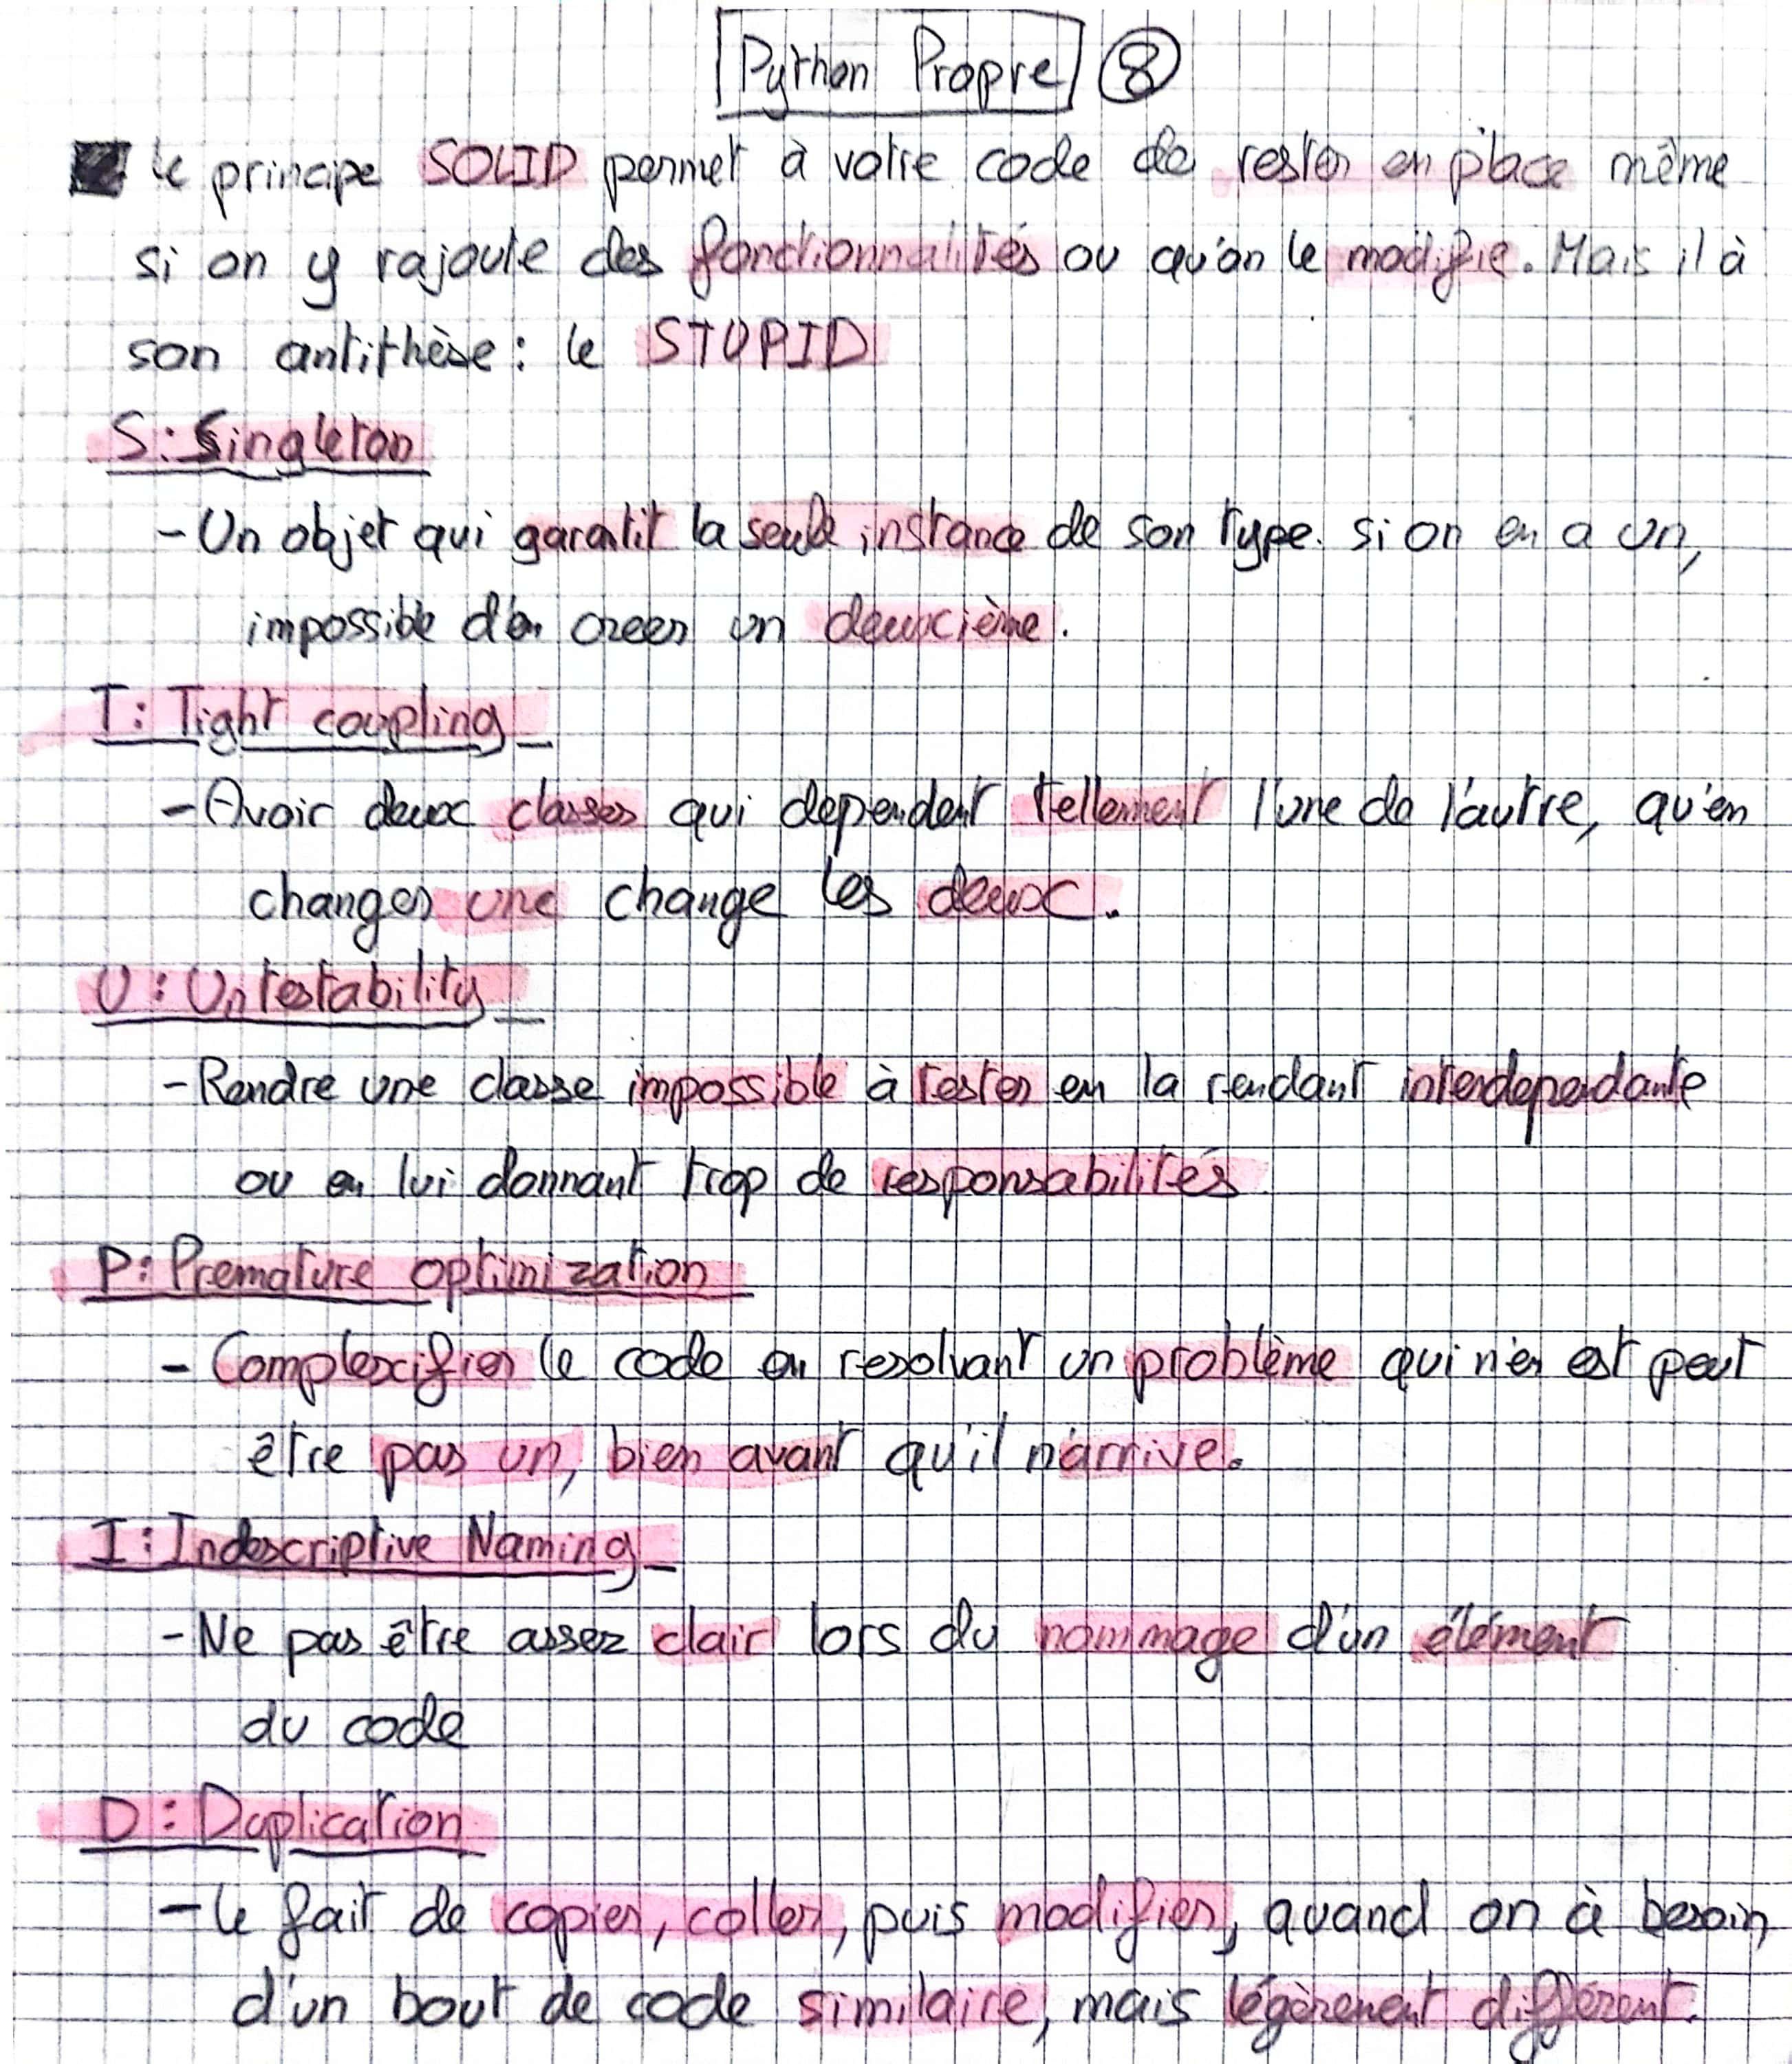 Python Propre 8
Le principe SOLID permet à votre code de rester en place même
si on y rajoute des fonctionnalités ou qu'on le modifie. Mais il à
son antithèse : le STUPID
S : Singleton
- Un objet qui garantit la seule instance de son type. si on en a un,
impossible d'en creer un deuxième.
T : Tight coupling
- Avoir deux classes qui dependent tellement l'une de l'autre, qu'en
changer une change les deux.
U : Untestability
- Rendre une classe impossible à tester en la rendant interdependante
ou en lui donnant trop de responsabilités
P : Premature optimization
- Complexifier le code en resolvant un problème qui n'en est peut
être pas un, bien avant qu'il n'arrive.
I : Indescriptive Naming
- Ne pas être assez clair lors du nommage d'un élément
du code
D : Duplication
- Le fait de copier, coller, puis modifier, quand on à besoin
d'un bout de code similaire, mais légèrement différent.